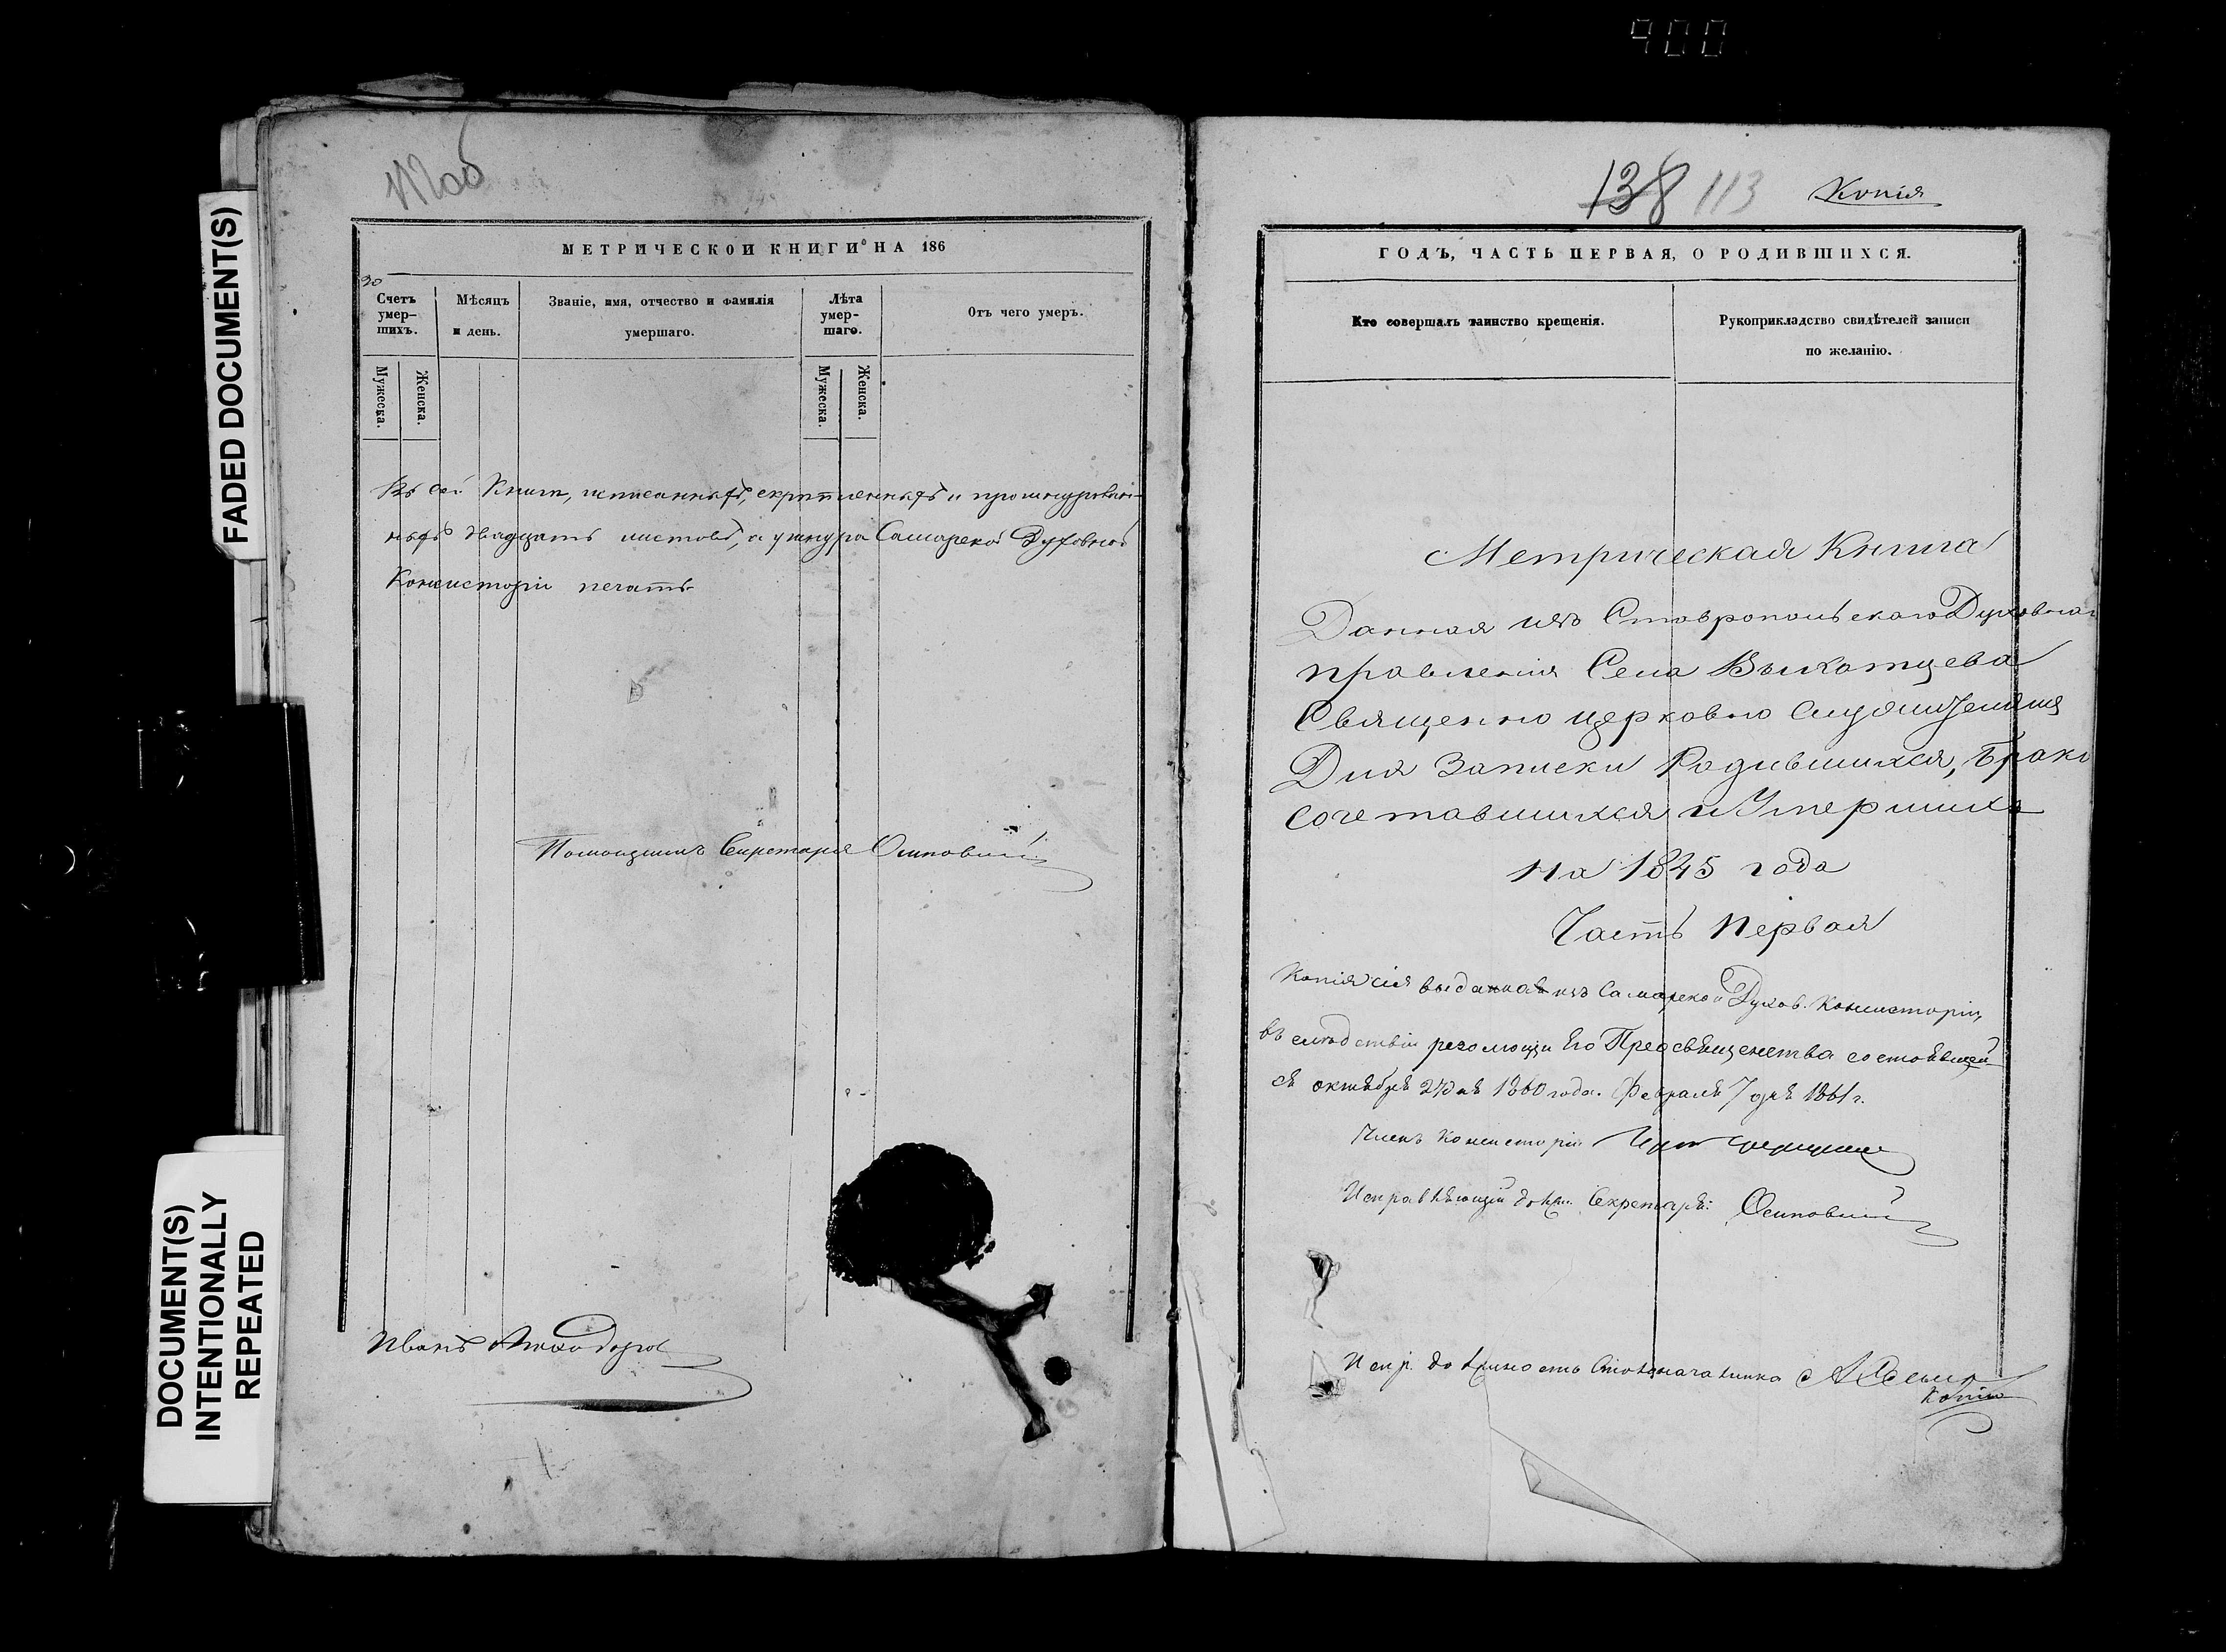 900
FADED DOCUMENT(S)
DOCUMENT(S)
INTENTIONALLY
REPEATED
МЕТРИЧЕСКОЙ КНИГИ НА 186
30
Счетъ умер-шихъ.
Мѣсяцъ и день.
Званіе, имя, отчество и фамилія умершаго.
Лѣта умер-шаго.
Отъ чего умеръ.
Мужеска.
Женска.
Мужеска.
Женска.
Въ сей Книгѣ, исписанныхъ, скрѣпленныхъ и прошнурован-
ныхъ двадцать листовъ, у шнура Самарской Духовной
Консисторіи печать.
Помощникъ Секретаря Осиповскій
Иванъ
138 113 Копія
ГОДЪ, ЧАСТЬ ПЕРВАЯ, О РОДИВШИХСЯ.
Кто совершалъ таинство крещенія.
Рукоприкладство свидѣтелей записи
по желанію.
Метрическая Книга
Данная изъ Ставропольскаго Духовнаг
правленія Села
Священно церковно служителямъ
Для Записки Родившихся, Брако
сочетавшихся и Умершихъ
на 1845 года
Часть Первая
Копія сія выдана изъ Самарской Духов. Консисторіи,
въ слѣдствіи резолюціи Его Преосвященства состоявшей
ся октября 1860 года. Февраля 7 дня 1861 г.
Членъ Консисторіи
Исправляющій долж. Секретаря: Осиповскій
Испр. должность Столоначальника
Копія